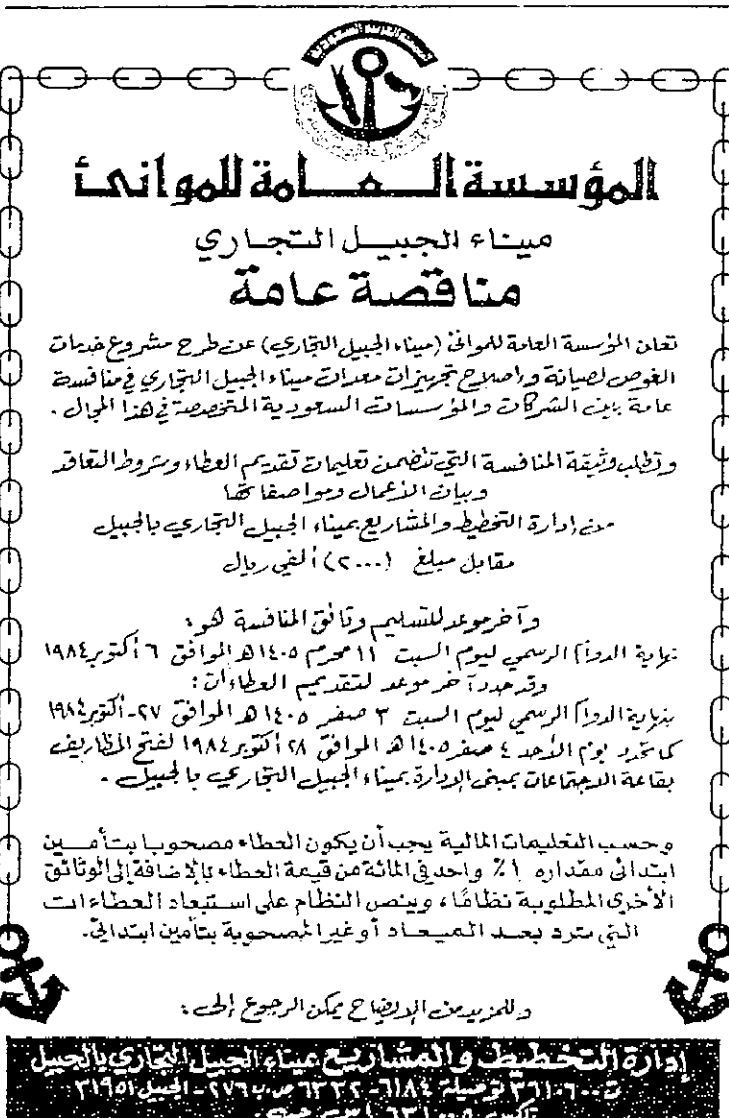 المملكة العربية السعودية
المؤسسة العامة للموانئ
ميناء الجبيل التجاري
مناقصة عامة
تعلن المؤسسة العامة للموانئ (ميناء الجبيل التجاري) عن طرح مشروع خدمات
الغوص لصيانة واصلاح تجهيزات معدات ميناء الجبيل التجاري في منافسة
عامة بين الشركات والمؤسسات السعودية المتخصصة في هذا المجال .
وتطلب وثيقة المنافسة التي تتضمن تعليمات تقديم العطاء وشروط التعاقد
وبيان الأعمال ومواصفاتها
من إدارة التخطيط والمشاريع بميناء الجبيل التجاري بالجبيل
مقابل مبلغ (٢٠٠٠) ألفي ريال
وآخر موعد للتسليم وثائق المنافسة هو :
نهاية الدوام الرسمي ليوم السبت ١١ محرم ١٤٠٥هـ الموافق ٦ أكتوبر ١٩٨٤
وقد حدد آخر موعد لتقديم العطاءات :
بنهاية الدوام الرسمي ليوم السبت ٣ صفر ١٤٠٥هـ الموافق ٢٧-أكتوبر ١٩٨٤
كما تحدد يوم الأحد ٤ صفر ١٤٠٥هـ الموافق ٢٨ أكتوبر ١٩٨٤ لفتح المظاريف
بقاعة الاجتماعات بمبنى الإدارة بميناء الجبيل التجاري بالجبيل .
وحسب التعليمات المالية يجب أن يكون العطاء مصحوبا بتأمين
ابتدائي مقداره ١٪ واحد في المائة من قيمة العطاء بالإضافة إلى الوثائق
الأخرى المطلوبة نظامًا ، وينص النظام على استبعاد العطاءات
التي ترد بعد الميعاد أو غير المصحوبة بتأمين ابتدائي.
وللمزيد من الإيضاح يمكن الرجوع إلى :
إدارة التخطيط والمشاريع بميناء الجبيل التجاري بالجبيل
ت ٣٦١٠٦٠٠ توصيلة ٦١٨٤-٦٣٢٢ ص.ب ٢٧٦ - الجبيل ٣١٩٥١
تلكس